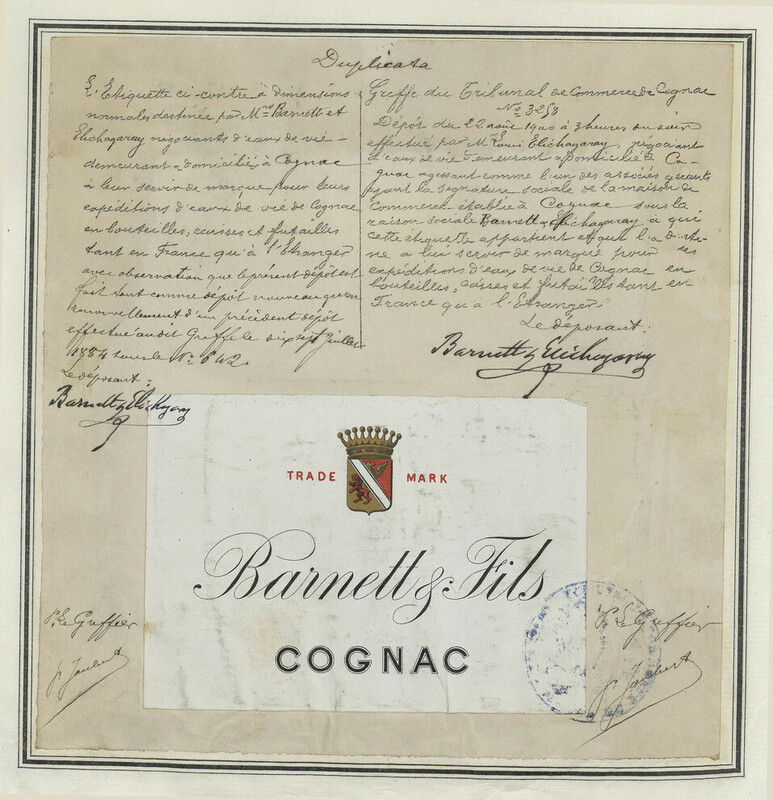 Duplicata
L'Etiquette ci-contre à dimensions
normales destinée par Mrs Barnett et
Elichagaray négociants d'eaux de vie
demeurant & domiciliés à Cognac
à leur servir de marque pour leurs
expéditions d'eaux de vie de Cognac
en bouteilles, caisses et futailles
tant en France qu'à l'Etranger
avec observation que le présent dépôt est
fait tant comme dépôt nouveau qu'en
renouvellement d'un précédent dépôt
effectué audit Greffe le dix sept juillet
1884 sous le No 642.
Le déposant :
Barnett & Elichagaray
Greffe du Tribunal de Commerce de Cognac
No 3253
Dépôt du 22 août 1900 à 3 heures du soir
effectué par M Louis Elichagaray, négociant
d'eaux de vie demeurant & domicilié à Co-
gnac agissant comme l'un des associés gérants
ayant la signature sociale de la maison de
Commerce établie à Cognac sous la
raison sociale Barnett & Elichagaray à qui
cette étiquette appartient et qui l'a desti-
née à leur servir de marque pour ses
expéditions d'eaux de vie de Cognac en
bouteilles, caisses et futailles tant en
France qu'à l'Etranger.
Le déposant :
Barnett & Elichagaray
TRADE MARK
Barnett & Fils
COGNAC
P. Le Greffier
P. Le Greffier